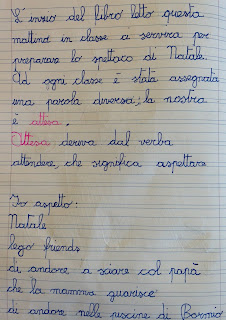 L'inizio del libro letto questa
mattina in classe a servira per
preparare lo spettaco di Natale.
Ad ogni classe è stata assegnata
una parola diversa; la nostra
è attesa.
Attesa deriva dal verbo
attendere, che significa aspettare

Io aspetto:
Natale
lego friends
di andare a sciare col papà
che la mamma guarisce
di andare nelle piscine di Bormio